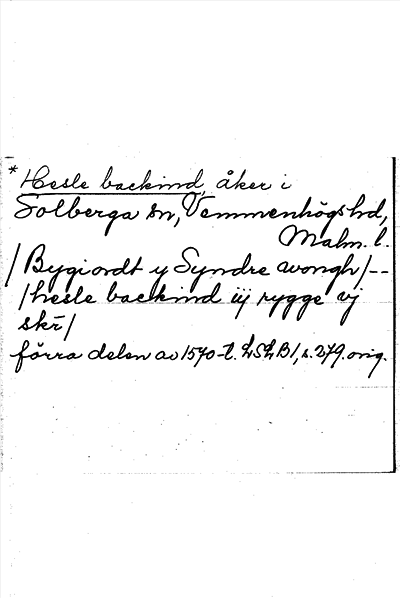 * Hesle backind, åker i
Solberga sn, Vemmenhögs hd,
Malm. l.
/Bygiordt y Syndre wongh/--
/hesle backind iij rygge vj
skr̄/
förra delen av 1570-t. LSLB1, s. 279. orig.